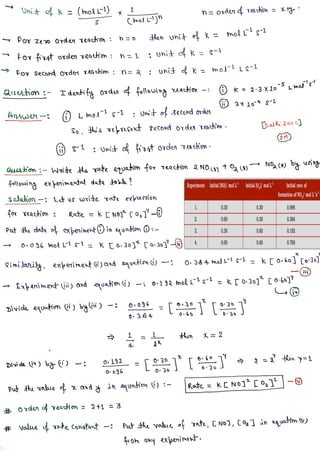 → Unit of K = (mol L⁻¹)/s × 1/(mol L⁻¹)ⁿ n = order of reaction = x+y.
→ For Zero Order reaction : n=0 then unit of k = mol L⁻¹ s⁻¹
→ For first order reaction : n=1 : unit of K = s⁻¹
→ For second order reaction : n=2 : unit of k = mol⁻¹ L s⁻¹
Question :- Identify order of following reaction -: (i) K = 2.3×10⁻⁵ L mol⁻¹ s⁻¹
(ii) 3×10⁻⁴ s⁻¹
Answer -: (i) L mol⁻¹ s⁻¹ : Unit of second order
So, this represent second order reaction.
(ii) s⁻¹ : Unit of first order reaction.
Question :- Write the rate equation for reaction 2NO(g) + O₂(g) → NO₂(g) by using
following experimental date table!
Solution -: Let us write rate expression
for reaction : Rate = K [NO]ˣ [O₂]ʸ -(i)
Experiment Initial [NO]/ mol L⁻¹ Initial [O₂]/ mol L⁻¹ Initial rate of formation of NO₂/ mol L⁻¹s⁻¹
1. 0.30 0.30 0.096
2. 0.60 0.30 0.384
3. 0.30 0.60 0.192
4. 0.60 0.60 0.768
Put the data of experiment (i) in equation (i) :-
→ 0.096 mol L⁻¹ s⁻¹ = K [0.30]ˣ [0.30]ʸ -(ii)
Similarly, experiment (ii) and equation (i) -: 0.384 mol L⁻¹ s⁻¹ = K [0.60]ˣ [0.30]ʸ -(iii)
→ Experiment (iii) and equation (i) -: 0.192 mol L⁻¹ s⁻¹ = K [0.30]ˣ [0.60]ʸ
(iv)
Divide equation (ii) by (iii) -: 0.096/0.384 = [0.30/0.60]ˣ [0.30/0.30]ʸ
⇒ 1/4 = 1/2ˣ then x = 2
Divide (iv) by (ii) -: 0.192/0.096 = [0.30/0.30]ˣ [0.60/0.30]ʸ ⇒ 2 = 2ʸ then y=1
Put the value of x and y in equation (i) :- Rate = K [NO]² [O₂]¹ -(v)
# Order of reaction = 2+1 = 3
# Value of rate constant -: Put the value of rate, [NO], [O₂] in equation (v)
from any experiment.